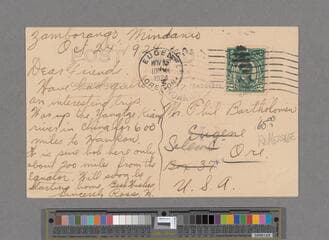 Zamboranga, Mindanao
Oct 24, 192
Dear Friends.
Have had quite
an interesting trip.
Was up the Yangtze Kiang
river in China for 600
miles to Hankow.
It is sure hot here only
about 500 miles from the
Equator. Will soon be
starting home. Best Wishes
Sincerely Ross W.
EUGENE
NOV
OREGON
Mr Phil Bartholomew
Eugene
Salem Ore
Box 37
U.S.A.